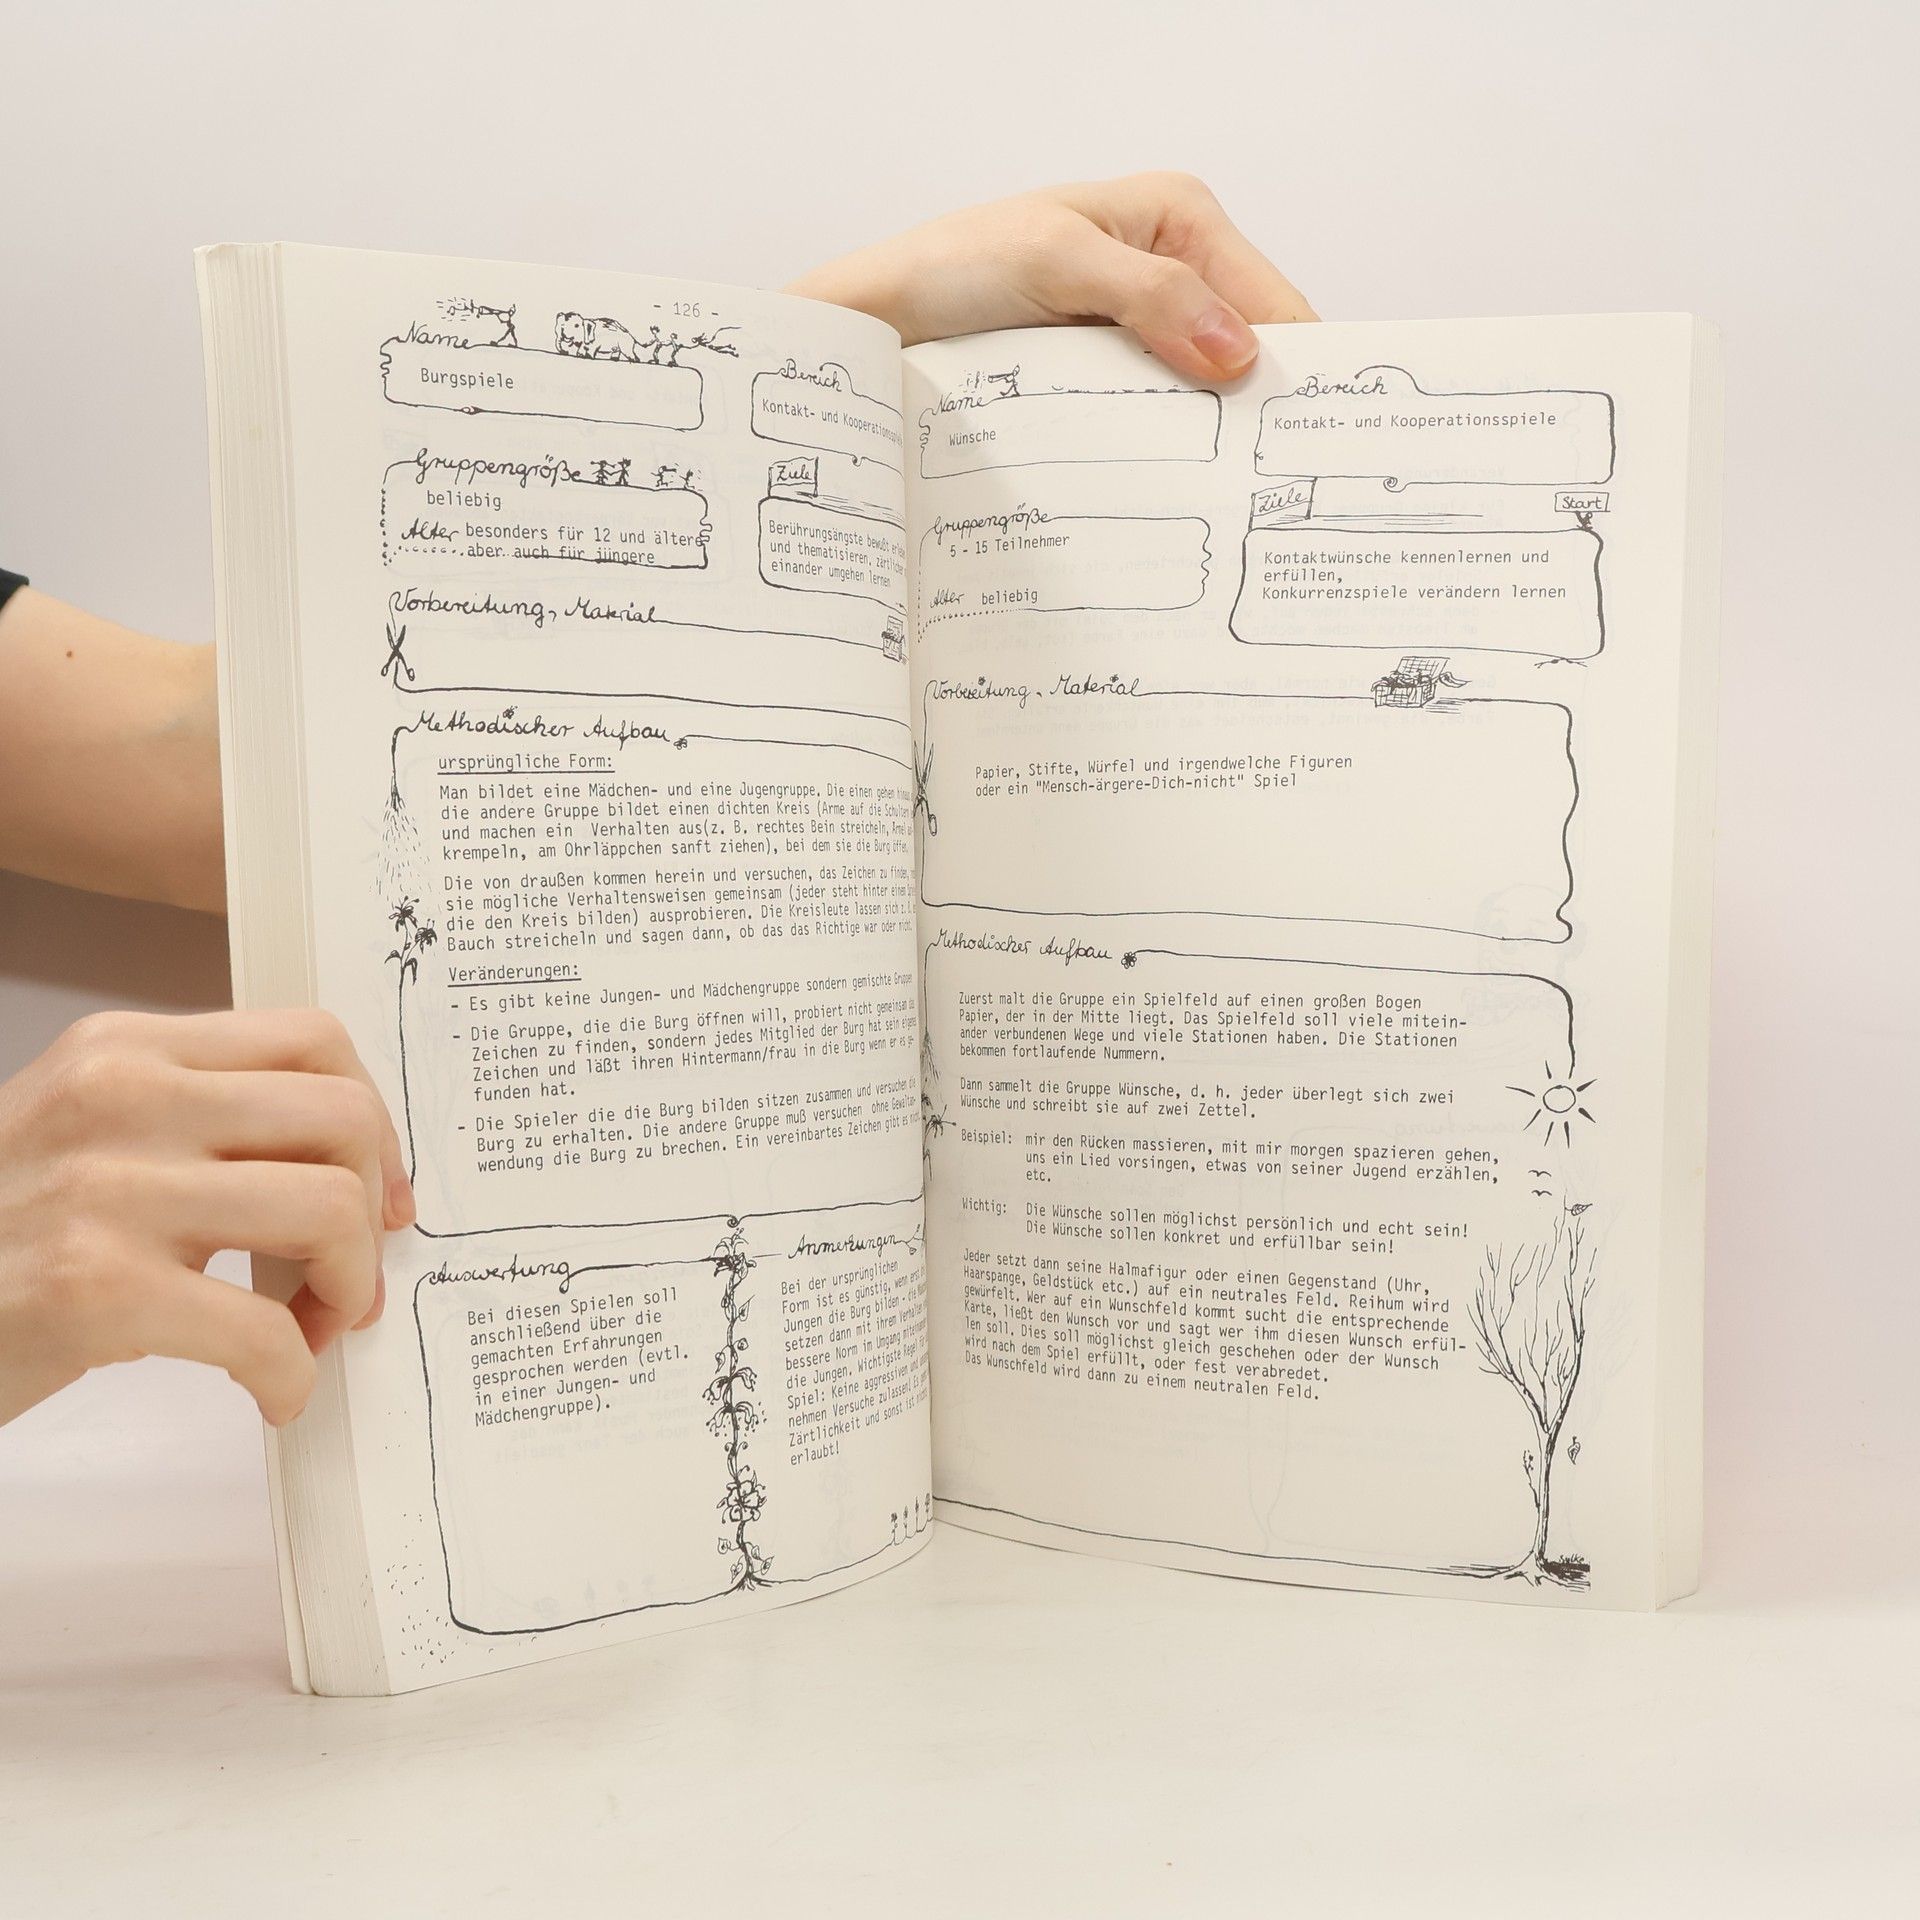 - 126 -
Name
Burgspiele
Bereich
Kontakt- und
Gruppengröße
beliebig
Alter besonders für 12 und ältere
aber auch für jüngere
Ziele
Berührungsängste bewußt
und thematisieren,
einander umgehen lernen
Vorbereitung, Material
Methodischer Aufbau
ursprüngliche Form:
Man bildet eine Mädchen- und eine Jugengruppe. Die einen gehen
die andere Gruppe bildet einen dichten Kreis (Arme auf die Schultern
und machen ein Verhalten aus(z. B. rechtes Bein streicheln,
krempeln, am Ohrläppchen sanft ziehen), bei dem sie die Burg öffen.
Die von draußen kommen herein und versuchen, das Zeichen zu finden,
sie mögliche Verhaltensweisen gemeinsam (jeder steht hinter einem
die den Kreis bilden) ausprobieren. Die Kreisleute lassen sich z. B.
Bauch streicheln und sagen dann, ob das das Richtige war oder nicht.
Veränderungen:
- Es gibt keine Jungen- und Mädchengruppe sondern gemischte Gruppen
- Die Gruppe, die die Burg öffnen will, probiert nicht gemeinsam das
Zeichen zu finden, sondern jedes Mitglied der Burg hat sein eigenes
Zeichen und läßt ihren Hintermann/frau in die Burg wenn er es ge-
funden hat.
- Die Spieler die die Burg bilden sitzen zusammen und versuchen die
Burg zu erhalten. Die andere Gruppe muß versuchen ohne Gewaltan-
wendung die Burg zu brechen. Ein vereinbartes Zeichen gibt es nicht.
Auswertung
Bei diesen Spielen soll
anschließend über die
gemachten Erfahrungen
gesprochen werden (evtl.
in einer Jungen- und
Mädchengruppe).
Anmerkungen
Bei der ursprünglichen
Form ist es günstig, wenn erst
Jungen die Burg bilden - die
setzen dann mit ihrem Verhalten
bessere Norm im Umgang
die Jungen. Wichtigste Regel
Spiel: Keine aggressiven und
nehmen Versuche zulassen!
Zärtlichkeit und sonst ist
erlaubt!
Name
Wünsche
Bereich
Kontakt- und Kooperationsspiele
Gruppengröße
5 - 15 Teilnehmer
Alter beliebig
Ziele
Start
Kontaktwünsche kennenlernen und
erfüllen,
Konkurrenzspiele verändern lernen
Vorbereitung, Material
Papier, Stifte, Würfel und irgendwelche Figuren
oder ein "Mensch-ärgere-Dich-nicht" Spiel
Methodischer Aufbau
Zuerst malt die Gruppe ein Spielfeld auf einen großen Bogen
Papier, der in der Mitte liegt. Das Spielfeld soll viele mitein-
ander verbundenen Wege und viele Stationen haben. Die Stationen
bekommen fortlaufende Nummern.
Dann sammelt die Gruppe Wünsche, d. h. jeder überlegt sich zwei
Wünsche und schreibt sie auf zwei Zettel.
Beispiel: mir den Rücken massieren, mit mir morgen spazieren gehen,
uns ein Lied vorsingen, etwas von seiner Jugend erzählen,
etc.
Wichtig: Die Wünsche sollen möglichst persönlich und echt sein!
Die Wünsche sollen konkret und erfüllbar sein!
Jeder setzt dann seine Halmafigur oder einen Gegenstand (Uhr,
Haarspange, Geldstück etc.) auf ein neutrales Feld. Reihum wird
gewürfelt. Wer auf ein Wunschfeld kommt sucht die entsprechende
Karte, ließt den Wunsch vor und sagt wer ihm diesen Wunsch erfül-
len soll. Dies soll möglichst gleich geschehen oder der Wunsch
wird nach dem Spiel erfüllt, oder fest verabredet.
Das Wunschfeld wird dann zu einem neutralen Feld.